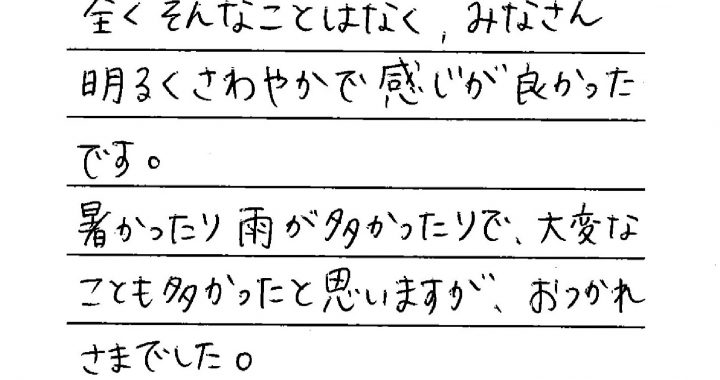 全くそんなことはなく, みなさん
明るくさわやかで感じが良かった
です。
暑かったり雨が多かったりで、大変な
ことも多かったと思いますが、おつかれ
さまでした。